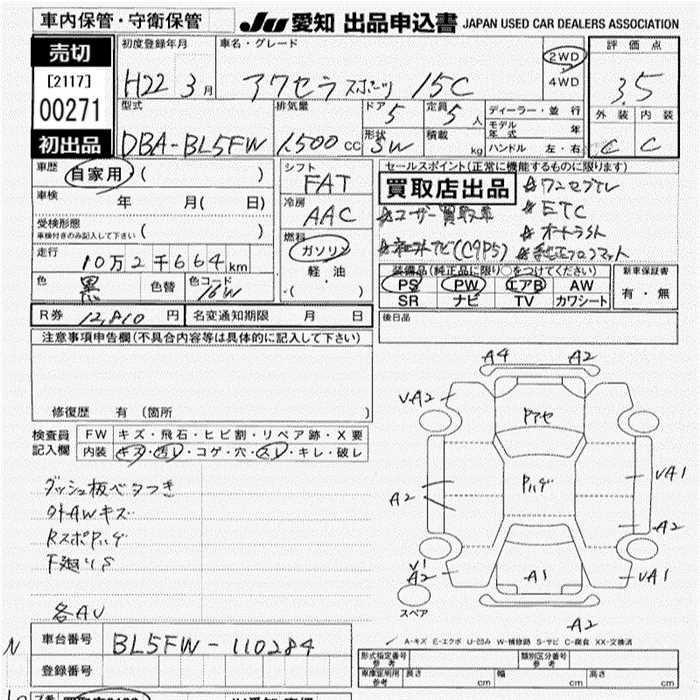 車内保管・守衛保管
Ju 愛知 出品申込書 JAPAN USED CAR DEALERS ASSOCIATION
売切
[2117]
00271
初出品
初度登録年月 車名・グレード 評価点
H22 3月 アクセラスポーツ 15C 2WD 4WD 3.5
型式 排気量 ドア 定員 ディーラー・並行 外装 内装
DBA-BL5FW 1,500cc 5 5人 モデル年式 年 C C
形状 SW 積載 kg ハンドル 左・右
車歴 自家用 ( )
車検 年 月( 日)
受検形態 車検付きのみ記入して下さい ( )
走行 10万2千664km
色 黒 色替 色コード 16W
シフト FAT
冷房 AAC
燃料 ガソリン
軽油
・( )
セールスポイント(正常に機能するものに限ります)
買取店出品
☆ワンセグTV
☆ユーザー買取車 ☆ETC
☆オートライト
(C9P5)
装備品(純正品に限り○をつけてください) 新車保証書
PS PW エアB AW 有・無
SR ナビ TV カワシート
R券 12,810円 名変通知期限 月 日
後日品
注意事項申告欄(不具合内容等は具体的に記入して下さい)
修復歴 有 (箇所 )
検査員記入欄 FW キズ・飛石・ヒビ割・リペア跡・X要
内装 キズ・汚レ・コゲ・穴・スレ・キレ・破レ
ダッシュ板ベタつき
外AWキズ
RスポPハゲ
下廻りS
各AU
A4 A2
VA2
Pアセ
Pハゲ
A2 VA1
A2
V1 A2 A1 VA1
スペア
A2
A-キズ E-エクボ U-凹み W-補修跡 S-サビ C-腐食 XX-交換済
N 車台番号 BL5FW-110284
登録番号
形式指定番号 参考 類別区分番号 参考
車庫証明用 参考 長さ cm 幅 cm 高さ cm